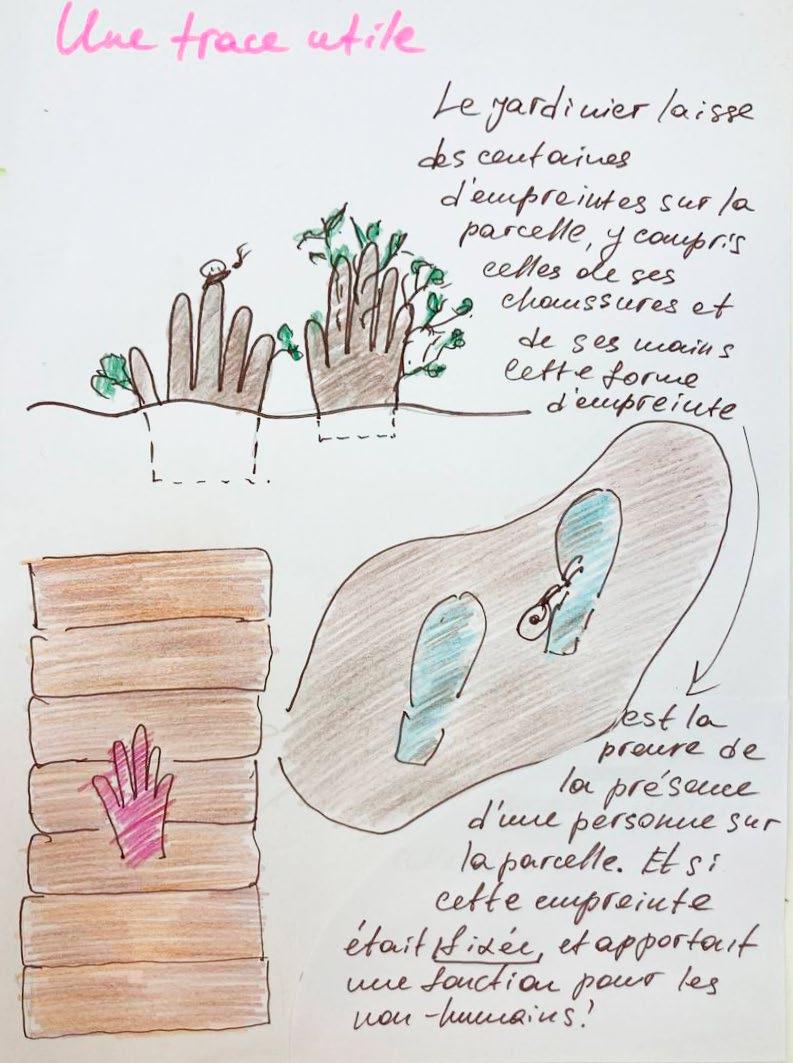 Une trace utile
Le jardinier laisse
des centaines
d'empreintes sur la
parcelle, y compris
celles de ses
chaussures et
de ses mains
Cette forme
d'empreinte
est la
preuve de
la présence
d'une personne sur
la parcelle. Et si
cette empreinte
était fixée, et apportait
une fonction pour les
non-humains!